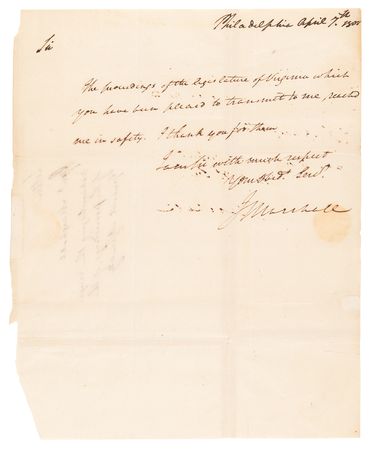 Philadelphia April 7th 1800
Sir
The proceedings of the legislature of Virginia which
you have been pleased to transmit to me, reached
me in safety. I thank you for them
I am Sir with much respect
Your Obedt. Servt.
J Marshall